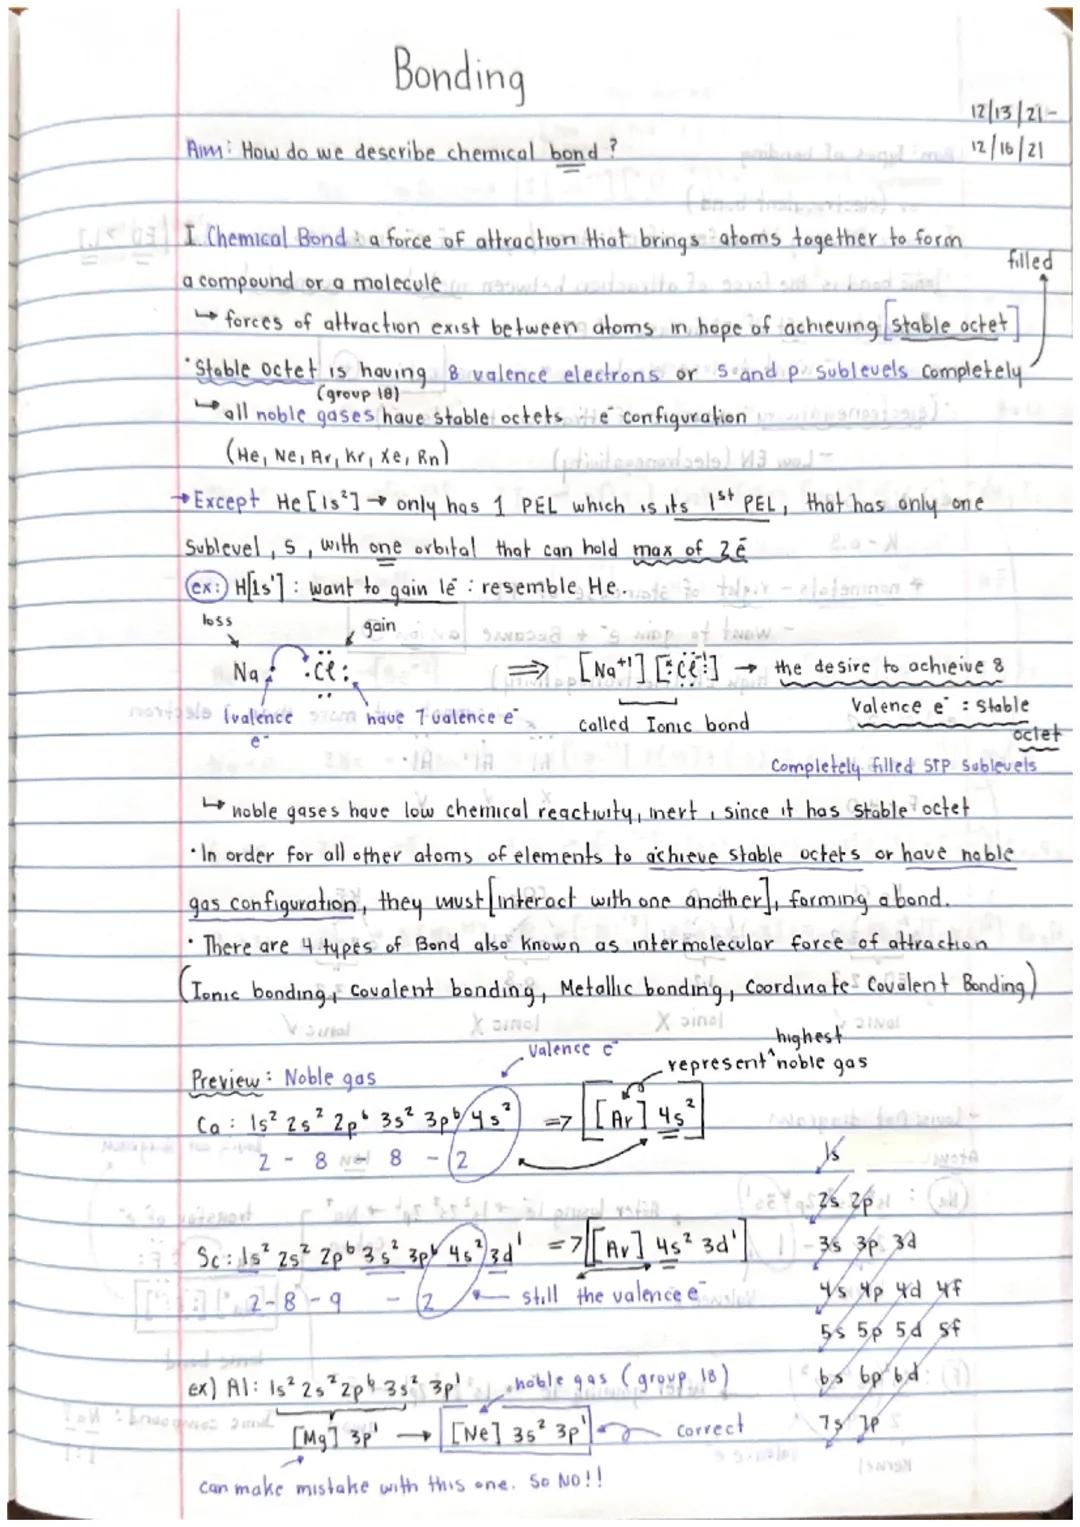 Bonding
12/13/21-
12/16/21
Aim: How do we describe chemical bond?
I Chemical Bond: a force of attraction that brings atoms together to form
filled
a compound or a molecule
↳ forces of attraction exist between atoms in hope of achieving [stable octet]
·Stable octet is having 8 valence electrons or s and p sublevels completely
(group 18)
↳ all noble gases have stable octets : e⁻ configuration
(He, Ne, Ar, Kr, Xe, Rn)
→Except He [1s²] → only has 1 PEL which is its 1st PEL, that has only one
sublevel, s, with one orbital that can hold max of 2e⁻
ex: H[1s¹] : want to gain 1e⁻ : resemble He.
loss gain
Na· ·Cl: ⇒ [Na⁺¹] [:Cl:⁻¹] → the desire to achieive 8
1valence e⁻ have 7 valence e⁻ called Ionic bond valence e⁻ : stable
octet
Completely filled S+P sublevels
↳ noble gases have low chemical reactivity, inert, since it has stable octet
·In order for all other atoms of elements to achieve stable octets or have noble
gas configuration, they must [interact with one another], forming a bond.
·There are 4 types of Bond also known as intermolecular force of attraction
(Ionic bonding, Covalent bonding, Metallic bonding, Coordinate Covalent Bonding)
highest
Valence e⁻ represent ^ noble gas
Preview: Noble gas
Ca: 1s² 2s² 2p⁶ 3s² 3p⁶ 4s² => [[Ar] 4s²]
2 - 8 - 8 - 2
1s
2s 2p
Sc: 1s² 2s² 2p⁶ 3s² 3p⁶ 4s² 3d¹ => [[Ar] 4s² 3d¹]
3s 3p 3d
2-8-9 - 2 still the valence e⁻
4s 4p 4d 4f
5s 5p 5d 5f
ex) Al: 1s² 2s² 2p⁶ 3s² 3p¹ noble gas (group 18)
6s 6p 6d
[Mg] 3p¹ → [Ne] 3s² 3p¹ correct
7s 7p
can make mistake with this one. So NO!!